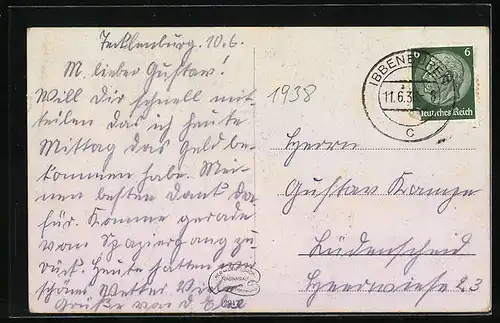 Tecklenburg, 10.6.
M. lieber Gustav!
Will Dir schnell mit-
teilen das ich heute
Mittag das Geld be-
kommen habe. Mei-
nen besten Dank da
für. Komme gerade
vom Spaziergang zu-
rück. Heute hatten wir
schönes Wetter. Viele
Grüße von d. Else
1938
IBBENBÜREN
11.6.3
c
6
Deutsches Reich
Herrn
Gustav Kampe
Lüdenscheid
Heerwiese 23